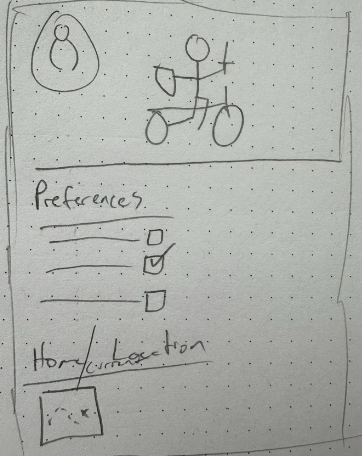 Preferences
Home/Current Location